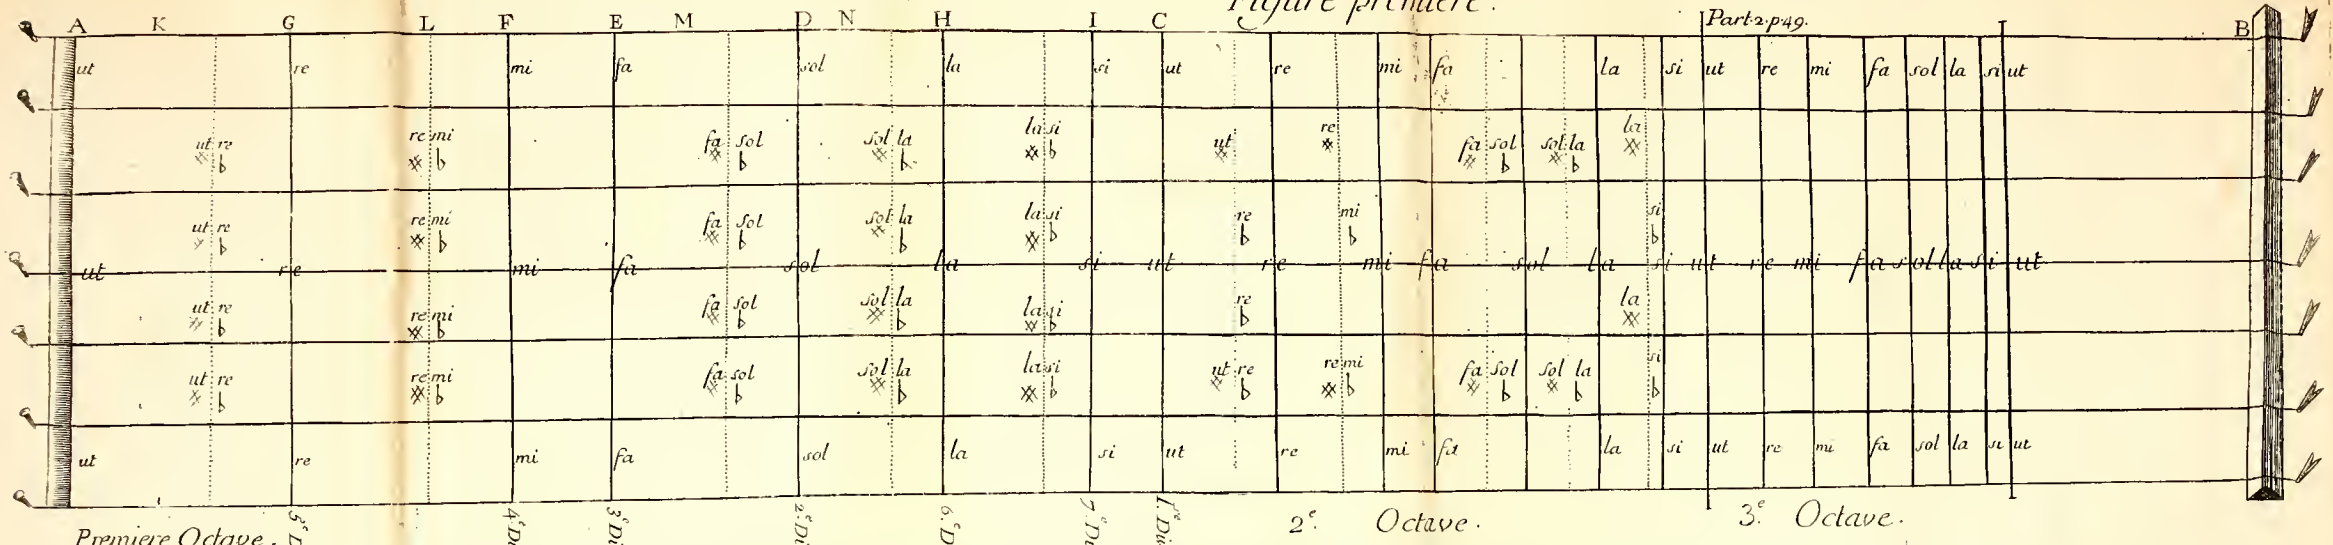 Figure premiere.
A K G L F E M D N H I C Part.2.p.49. B
ut re mi fa sol la si ut re mi fa la si ut re mi fa sol la si ut
ut re re mi fa sol sol la la si ut re fa sol sol la la
ut re re mi fa sol sol la la si re mi si
ut re mi fa sol la si ut re mi fa sol la si ut re mi fa sol la si ut
ut re re mi fa sol sol la la si re la
ut re re mi fa sol sol la la si ut re re mi fa sol sol la si
ut re mi fa sol la si ut re mi fa la si ut re mi fa sol la si ut
Premiere Octave. 5.e D 4.e Di 3.e Di 2.e Di 6.e D 7.e Di 1.re Div 2.e Octave. 3.e Octave.